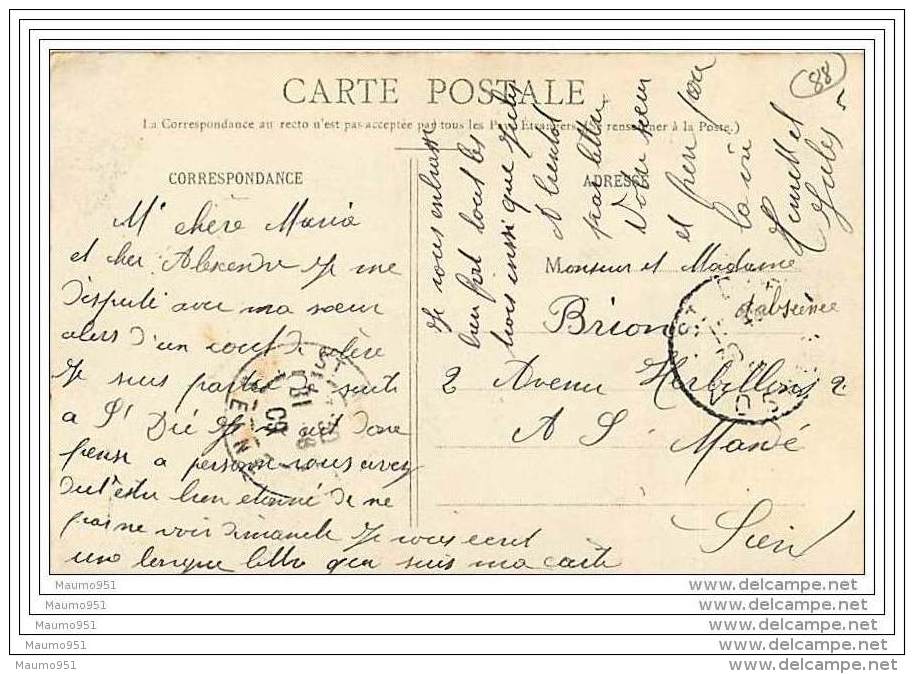 88
CARTE POSTALE
La Correspondance au recto n'est pas acceptée par tous les Pays Étrangers (Se renseigner à la Poste.)
CORRESPONDANCE
ADRESSE
M' chère Maria
et cher Alexendre Je me
disputé avec ma sœur
alors d'un cout de colère
Je suis partie de suite
a St Dié Je n'ait donc
pense a personne vous avez
dut estu bien etonné de ne
pas ne voir dimanche Je vous ecrit
une longue lettre qua suis ma carte
Je vous enbrasse
bien fort tous les
trois insi que Jules
A bientot
par lettre
Votre sœur
et frere pour
la vie
et
Jules
Monsieur et Madame
Briono
d'absence
2 Avenue Herbillons 2
A St Mandé
Sien
Maumo951
Maumo951
Maumo951
Maumo951
Maumo951
delcampe.net
delcampe.net
delcampe.net
delcampe.net
delcampe.net